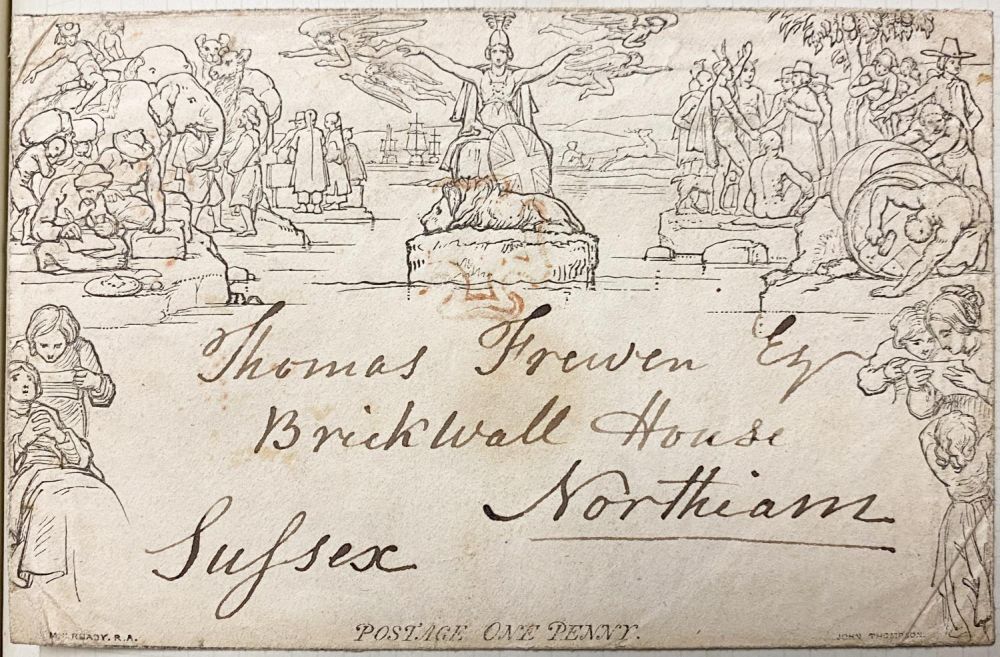 Thomas Frewen Esq
Brickwall House
Northiam
Sussex
W. MULREADY. R.A.
POSTAGE ONE PENNY.
JOHN THOMPSON.